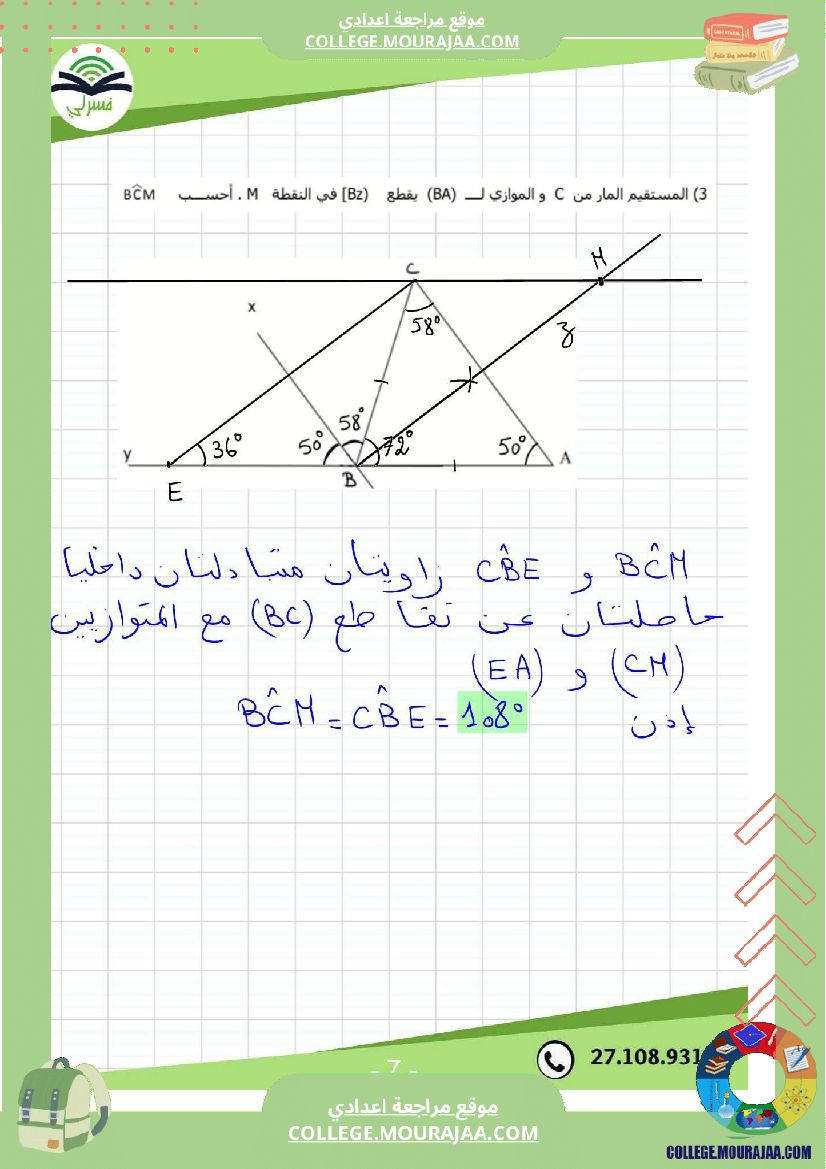 موقع مراجعة اعدادي
COLLEGE.MOURAJAA.COM
فسرلي
3) المستقيم المار من C و الموازي لـــ (BA) يقطع [Bz) في النقطة M . أحســـب BĈM
C
M
x
58°
z
58°
36°
50°
72°
50°
y
A
E
B
BĈM و CB̂E زاويتان متبادلتان داخليا
حاصلتان عن تقاطع (BC) مع المتوازيين
(CM) و (EA)
إذن BĈM = CB̂E = 108°
- 7 -
27.108.931
موقع مراجعة اعدادي
COLLEGE.MOURAJAA.COM
COLLEGE.MOURAJAA.COM